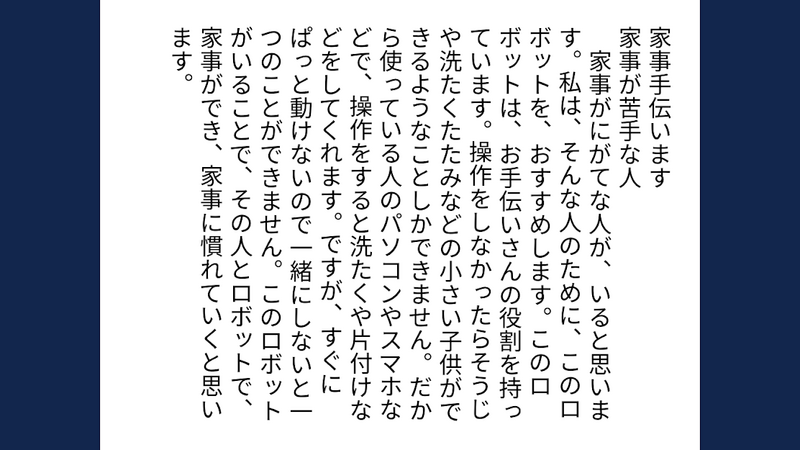 家事手伝います
家事が苦手な人
　家事がにがてな人が、いると思いま
す。私は、そんな人のために、このロ
ボットを、おすすめします。このロ
ボットは、お手伝いさんの役割を持っ
ています。操作をしなかったらそうじ
や洗たくたたみなどの小さい子供がで
きるようなことしかできません。だか
ら使っている人のパソコンやスマホな
どで、操作をすると洗たくや片付けな
どをしてくれます。ですが、すぐに
ぱっと動けないので一緒にしないと一
つのことができません。このロボット
がいることで、その人とロボットで、
家事ができ、家事に慣れていくと思い
ます。